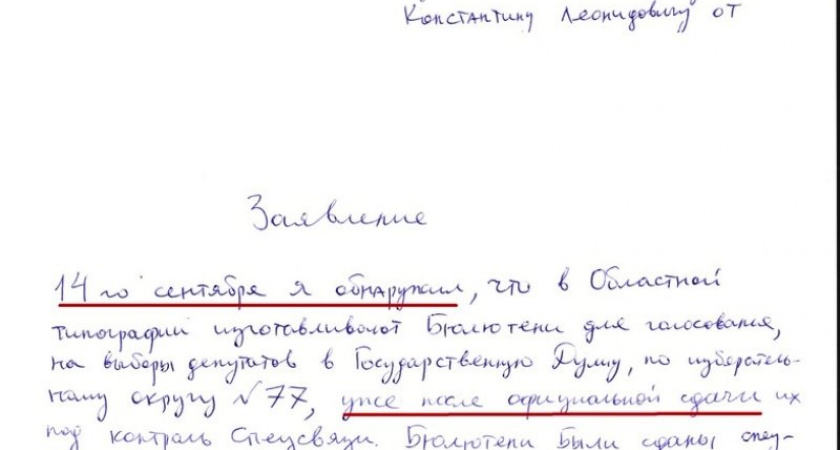 Константину Леонидовичу от
Заявление
14го сентября я обнаружил, что в Областной
типографии изготавливают Бюлютени для голосования,
на выборы депутатов в Государственную Думу, по избератель-
ному округу №77, уже после официальной сдачи их
под контроль Спецсвязи. Бюлютени были сданы спец-